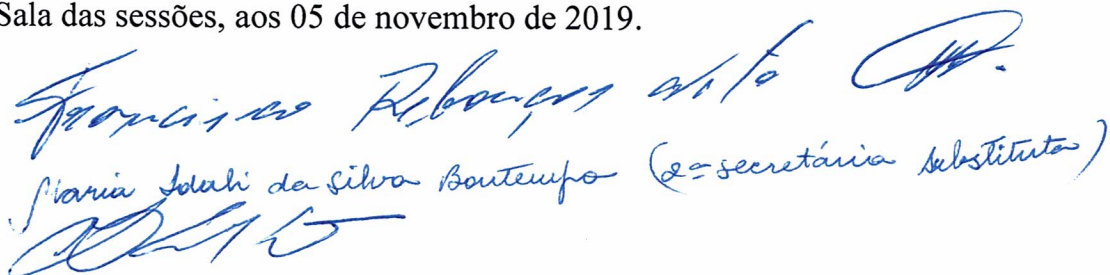 Sala das sessões, aos 05 de novembro de 2019.
Francisco Rebouças
Maria Idali da Silva Bontempo (2ª secretária substituta)